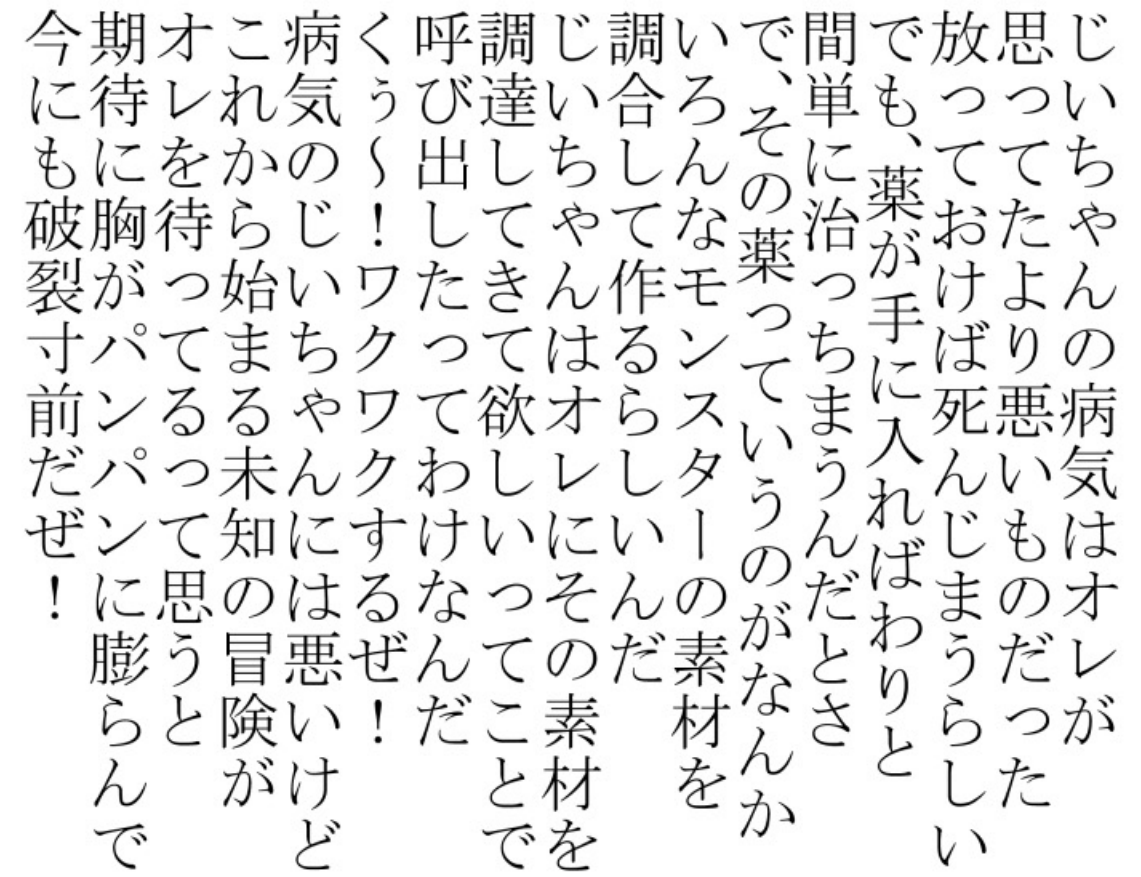 じいちゃんの病気はオレが
思ってたより悪いものだった
放っておけば死んじまうらしい
でも、薬が手に入ればわりと
間単に治っちまうんだとさ
で、その薬っていうのがなんか
いろんなモンスターの素材を
調合して作るらしいんだ
じいちゃんはオレにその素材を
調達してきて欲しいってことで
呼び出したってわけなんだ
くぅ～！ワクワクするぜ！
病気のじいちゃんには悪いけど
これから始まる未知の冒険が
オレを待ってるって思うと
期待に胸がパンパンに膨らんで
今にも破裂寸前だぜ！